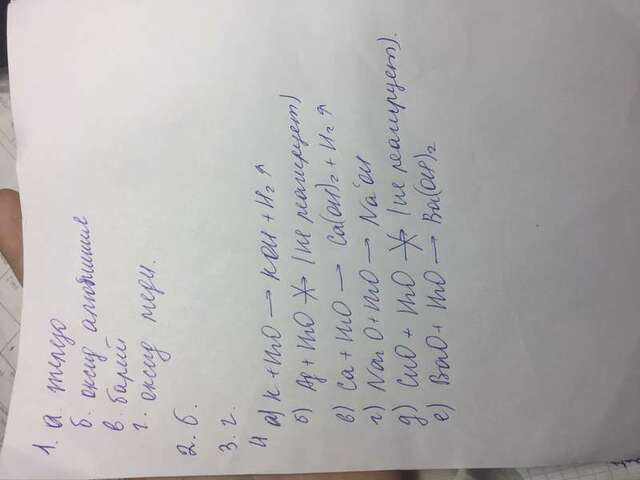 1. а. железо
б. оксид алюминия
в. барий
г. оксид меди.
2. б.
3. г.
4 а) K + H2O → KOH + H2↑
б) Ag + H2O ↛ (не реагирует)
в) Ca + H2O → Ca(OH)2 + H2↑
г) Na2O + H2O → NaOH
д) CuO + H2O ↛ (не реагирует).
е) BaO + H2O → Ba(OH)2